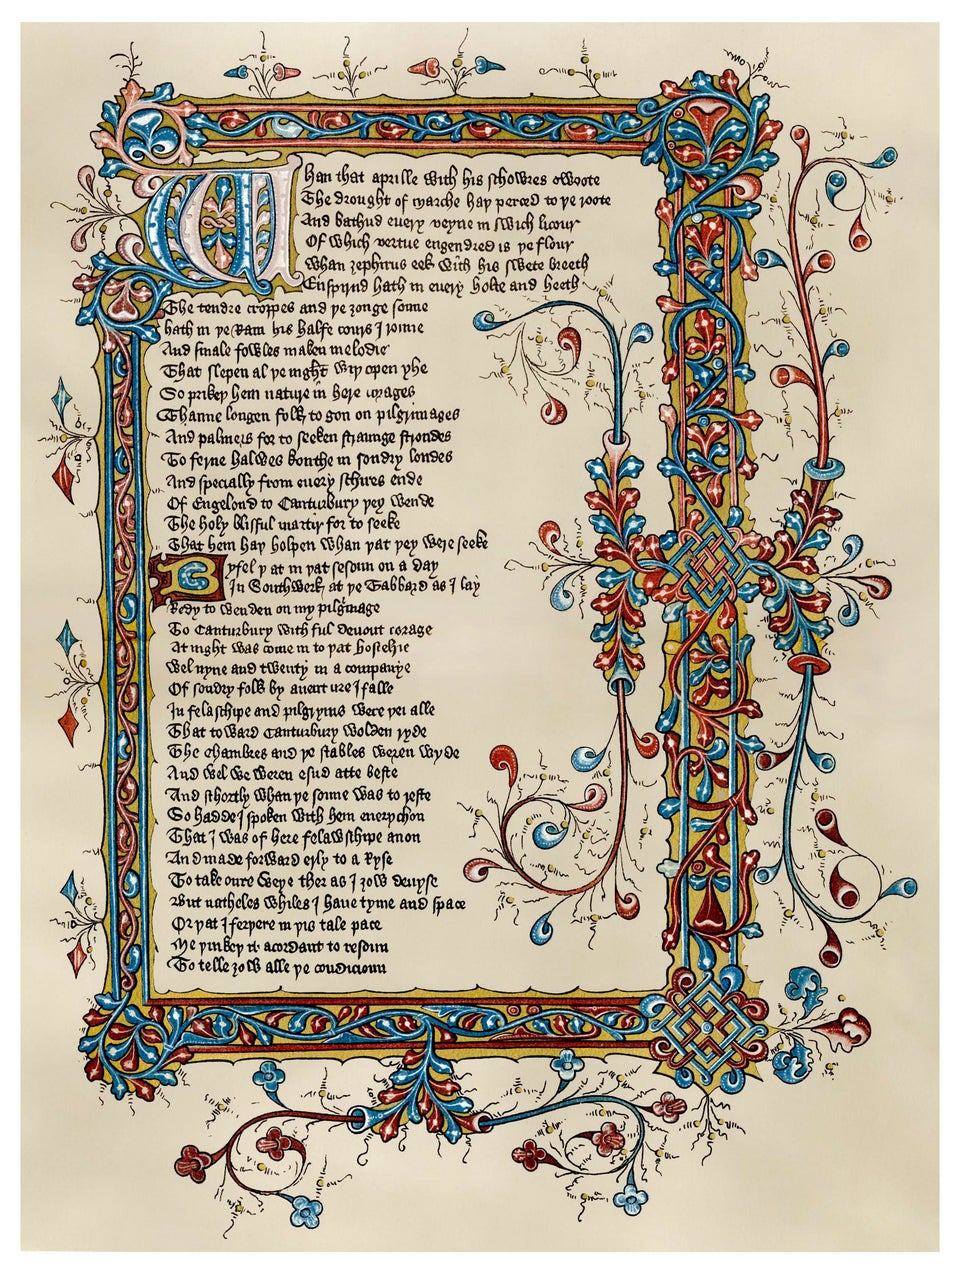 Whan that aprille with his schowres swoote
The drought of marche hay perced to ye roote
And bathud euery veyne in swich licour
Of which vertue engendred is ye flour
Whan zephirus eek with his swete breeth
Enspirud hath in euery holte and heeth
The tendre croppes and ye yonge sonne
hath in ye Ram his halfe cours J ronne
And smale fowles maken melodie
That slepen al ye night wiy open yhe
So prikey hem nature in here corages
Thanne longen folk to gon on pilgrimages
And palmers for to seeken straunge strondes
To ferne halwes kouthe in sondry londes
And specially from euery schires ende
Of Engelond to Canturbury yey wende
The holy blisful martir for to seeke
That hem hay holpen whan yat yey were seeke
Byfel y at in yat sesoun on a day
In Southwerk at ye Tabbard as J lay
Redy to wenden on my pilgrimage
To Canturbury with ful deuout corage
At night was come in to yat hostelrie
Wel nyne and twenty in a companye
Of sondry folk by auent ure J falle
In felaschipe and pilgryms were yei alle
That to ward Canturbury wolden ryde
The chambres and ye stables weren wyde
And wel we weren esud atte beste
And schortly whan ye sonne was to reste
So hadde J spoken with hem euerychon
That J was of here felawschipe anon
And made forward erly to a ryse
To take oure weye ther as J yow deuyse
But natheles whiles J haue tyme and space
Or yat J ferpere in yis tale pace
Me yinkey it acordant to resoun
To telle yow alle ye condicioun